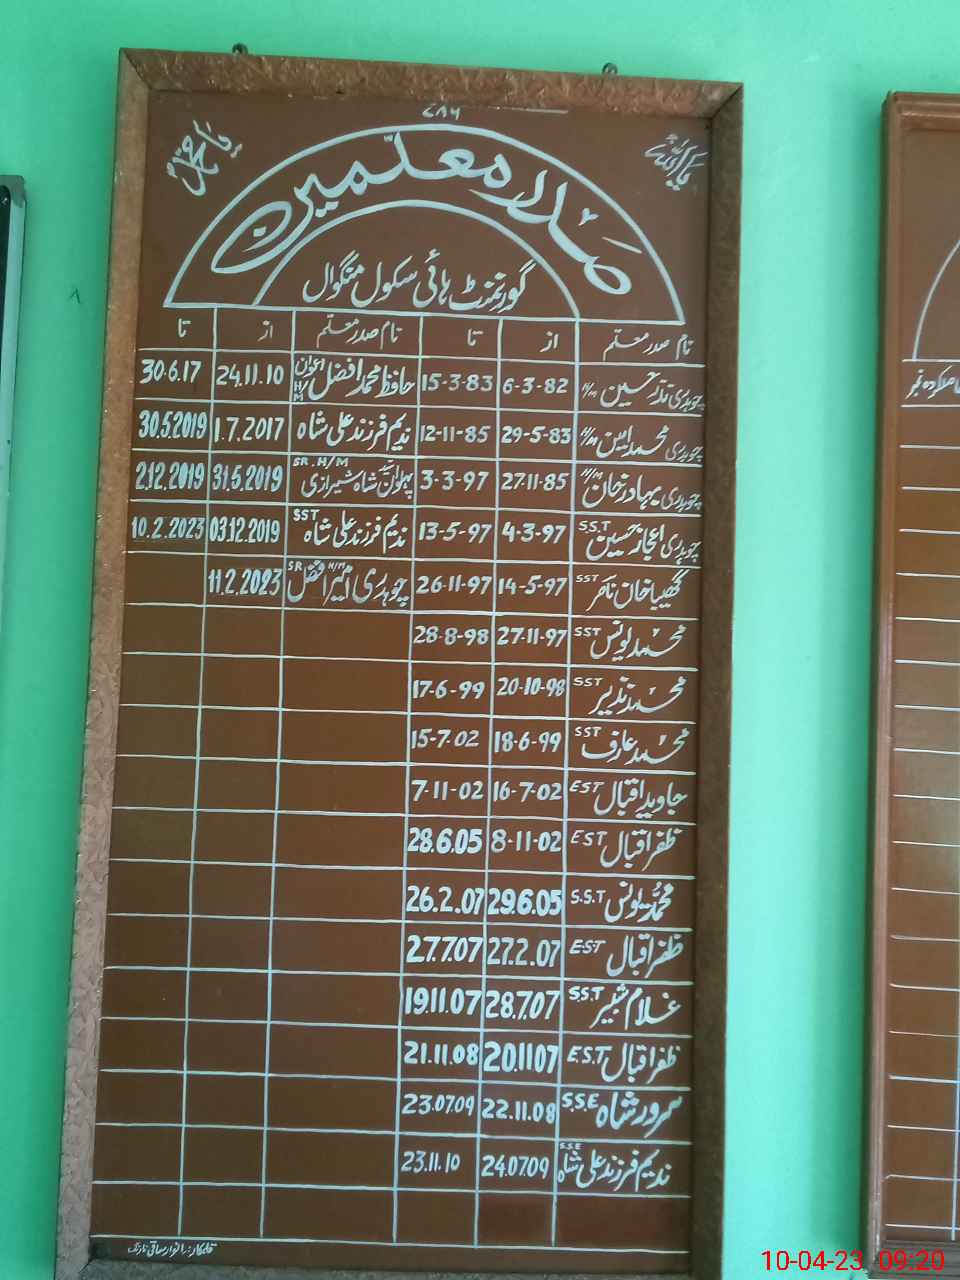 ۷۸۶
یااللہ
یامحمد
صدر معلمین
گورنمنٹ ہائی سکول منگوال
نام صدر معلم از تا نام صدر معلم از تا
چوہدری نذر حسین H/M 6-3-82 15-3-83 حافظ محمد افضل اعوان H/M 24.11.10 30.6.17
چوہدری محمد امین H/M 29-5-83 12-11-85 ندیم فرزند علی شاہ 1.7.2017 30.5.2019
چوہدری بہادر خان H/M 27-11-85 3-3-97 پہلوان سید شاہ شیرازی SR. H/M 31.5.2019 2.12.2019
چوہدری اعجاز حسین S.S.T 4-3-97 13-5-97 ندیم فرزند علی شاہ SST 03.12.2019 10.2.2023
گھیبا خان ناصر SST 14-5-97 26-11-97 چوہدری امیر افضل SR H/M 11.2.2023
محمد یونس SST 27-11-97 28-8-98
محمد نذیر SST 20-10-98 17-6-99
محمد عارف SST 18-6-99 15-7-02
جاوید اقبال EST 16-7-02 7-11-02
ظفر اقبال EST 8-11-02 28.6.05
محمد یونس S.S.T 29.6.05 26.2.07
ظفر اقبال EST 27.2.07 27.7.07
غلام شبیر S.S.T 28.7.07 19.11.07
ظفر اقبال E.S.T 20.11.07 21.11.08
سرور شاہ S.S.E 22.11.08 23.07.09
ندیم فرزند علی شاہ S.S.E 24.07.09 23.11.10
10-04-23 09:20